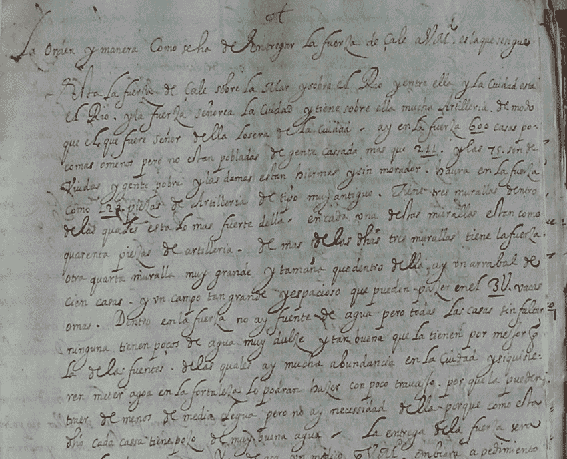 La Orden y manera Como se ha de Entregar la fuerza de Cale a V.M. es la que se sigue
Esta la fuerza de Cale sobre la Mar y sobre el Rio y entre ella y la Ciudad esta
el Rio. y la fuerza señorea la Ciudad y tiene sobre ella mucha Artilleria. de modo
que el que fuere señor della lo sera de la Ciudad. ay en la fuerza 600 casas po-
comas o menos pero no estan pobladas de gente cassada mas que y las 75 son de
Viudas y gente pobre y las demas estan hiermas y sin morador. havra en la fuerza
Como 120 piezas de Artilleria de tiro muy antiguo. Tiene tres murallas dentro
de las quales esta lo mas fuerte della. en cada una destas murallas estan como
quarenta piezas de artilleria. de mas de las dhas tres murallas tiene la fuerza
otra quarta muralla muy grande y tamaña que dentro della ay un arrabal de
cien casas. y un campo tan grande y espacioso que pueden pazer en el 3U vacas
o mas. Dentro en la fuerza no ay fuente de agua pero todas las casas sin faltar
ninguna tienen pozos de agua muy dulze y tan buena que la tienen por mejor q
la de las fuentes. de las quales ay mucha abundancia en la Ciudad y si quisie-
ren meter agua en la fortaleza lo podran hazer con poco travajo. por que la pueden
traer de menos de media legua pero no ay necessidad della. porque como esta
dho cada cassa tiene pozo de muy buena agua. La entrega de la fuerza sera
V.M. embiara a pedimiento